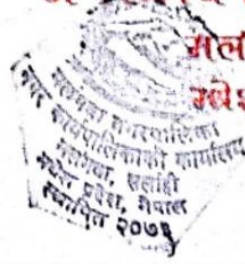 मल
मधेश
मलंगवा नगरपालिका
नगर कार्यपालिकाको कार्यालय
मलंगवा, सर्लाही
मधेश प्रदेश, नेपाल
स्थापित २०७३